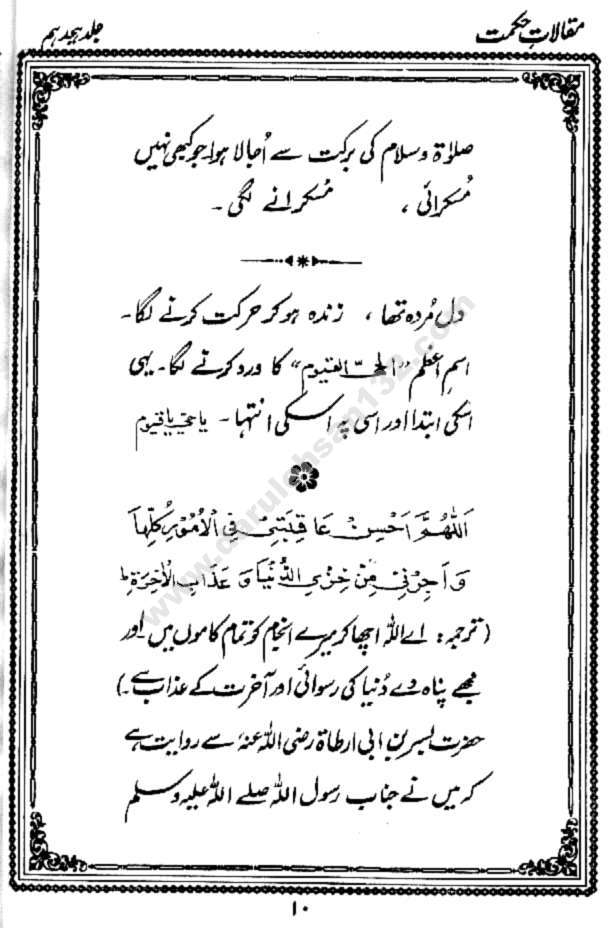 مقالاتِ حکمت
جلد ہیجدہم
صلوٰۃ وسلام کی برکت سے اُجالا ہوا۔ جو کبھی نہیں
مُسکرائی ، مُسکرانے لگی ۔
دل مُردہ تھا ، زندہ ہو کر حرکت کرنے لگا۔
اسمِ اعظم ”الحیّ القیوم“ کا ورد کرنے لگا۔ یہی
اسکی ابتدا اور اسی پہ اسکی انتہا ۔ یا حیّ یا قیوم
اَللّٰهُمَّ اَحْسِنْ عَاقِبَتِیْ فِی الْاُمُوْرِ كُلِّهَا
وَ اَجِرْنِیْ مِنْ خِزْیِ الدُّنْیَا وَ عَذَابِ الْاٰخِرَةِ ط
( ترجمہ : اے اللہ اچھا کر میرے انجام کو تمام کاموں میں اور
مجھے پناہ دے دُنیا کی رسوائی اور آخرت کے عذاب سے۔)
حضرت بسر بن ابی ارطاۃ رضی اللہ عنہٗ سے روایت ہے
کہ میں نے جناب رسول اللہ صلے اللہ علیہ وسلم
۱۰
www.darulehsan132.com